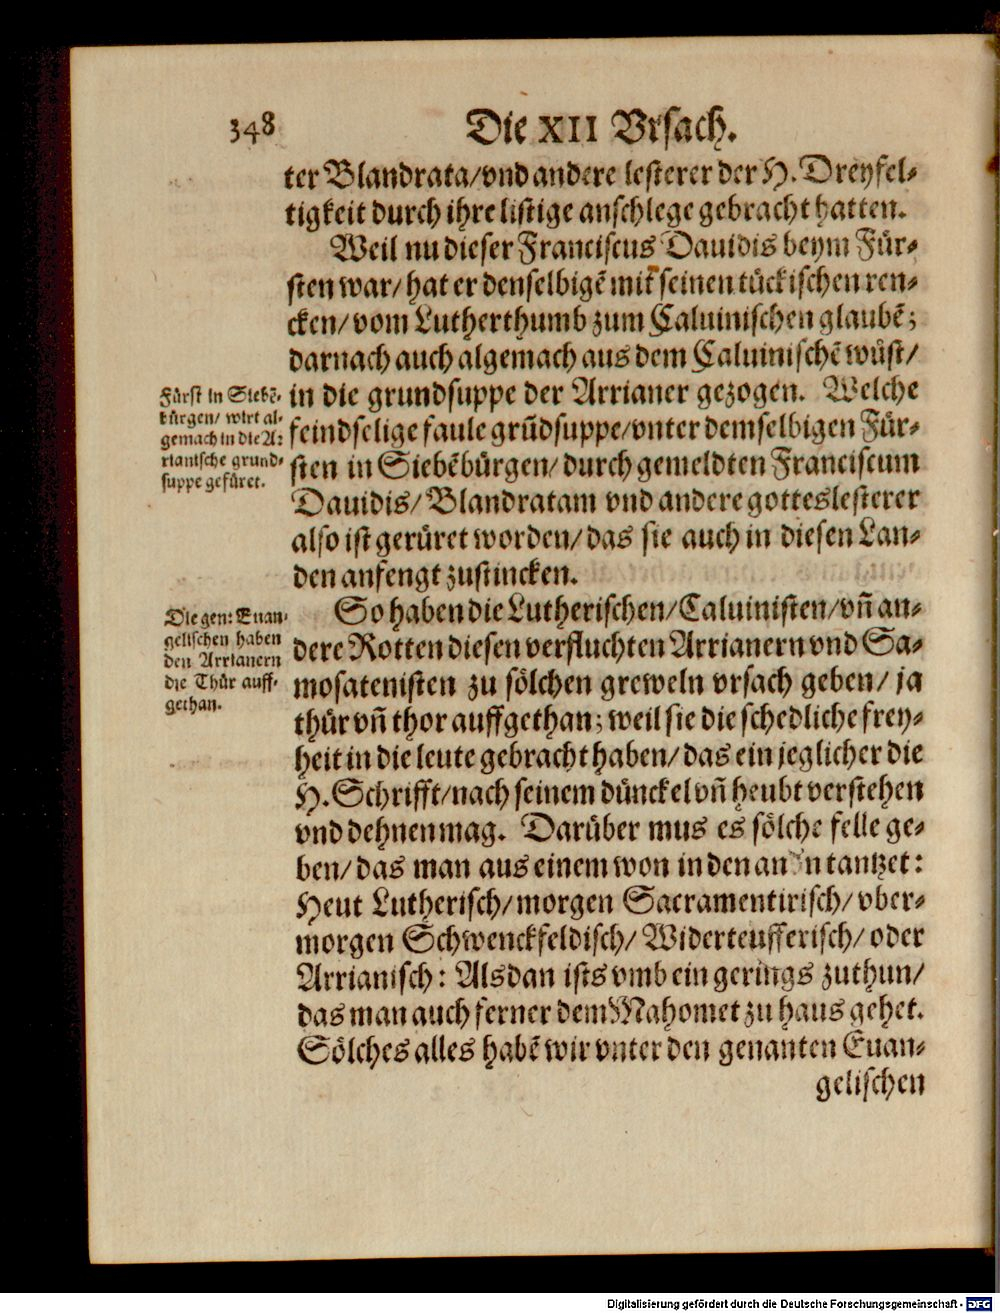 348
Die XII Vrsach.
ter Blandrata/vnd andere lesterer der H. Dreyfel-
tigkeit durch ihre listige anschlege gebracht hatten.
Weil nu dieser Franciscus Dauidis beym Für-
sten war/ hat er denselbigē mit seinen tückischen ren-
cken/ vom Lutherthumb zum Caluinischen glaubē;
darnach auch algemach aus dem Caluinischē wüst/
in die grundsuppe der Arrianer gezogen. Welche
feindselige faule grūdsuppe/vnter demselbigen Für-
sten in Siebēbürgen/ durch gemeldten Franciscum
Dauidis/ Blandratam vnd andere gotteslesterer
also ist gerüret worden/ das sie auch in diesen Lan-
den anfengt zustincken.
Fürst in Siebē-
bürgen/ wirt al-
gemach in die A:
rianische grund-
suppe gefüret.
So haben die Lutherischen/Caluinisten/vñ an-
dere Rotten diesen verfluchten Arrianern vnd Sa-
mosatenisten zu sölchen greweln vrsach geben/ ja
thür vñ thor auffgethan; weil sie die schedliche frey-
heit in die leute gebracht haben/ das ein jeglicher die
H. Schrifft/nach seinem dünckel vñ heubt verstehen
vnd dehnen mag. Darüber mus es sölche felle ge-
ben/ das man aus einem won in den tantzet:
Heut Lutherisch/morgen Sacramentirisch/ vber-
morgen Schwenckfeldisch/ Widerteufferisch/ oder
Arrianisch: Alsdan ists vmb ein gerings zuthun/
das man auch ferner dem Mahomet zu haus gehet.
Sölches alles habē wir vnter den genanten Euan-
gelischen
Die gen: Euan-
gelischen haben
den Arrianern
die Thür auff-
gethan.
Digitalisierung gefördert durch die Deutsche Forschungsgemeinschaft - DFG